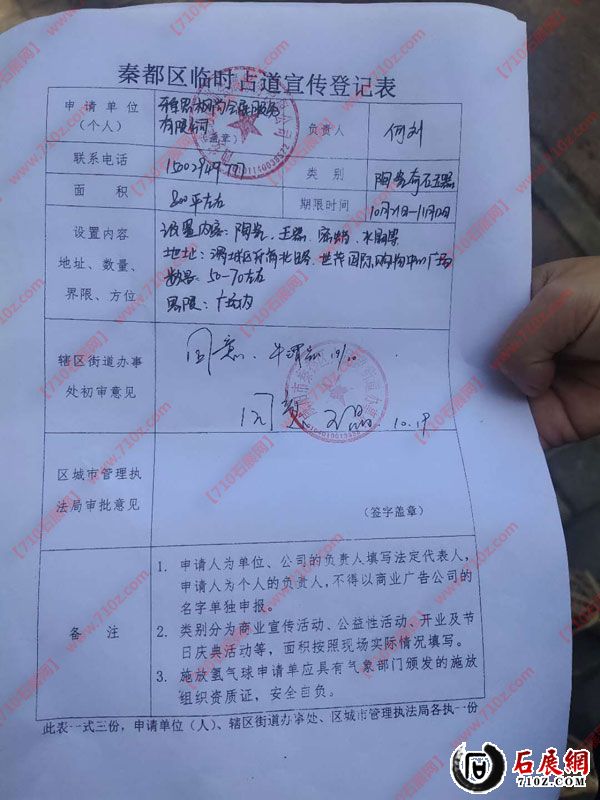 秦都区临时占道宣传登记表
申请单位
(个人)
会展服务
有限公司
(盖章)
负责人
何刘
联系电话
类 别
陶瓷奇石玉器
面 积
800平左右
期限时间
10月21日-11月12日
设置内容
地址、数量、
界限、方位
设置内容:陶瓷、玉器、蜜蜡、水晶等
地址: 世茂国际购物中心广场
数量:50-70左右
界限:广场内
辖区街道办事
处初审意见
同意.
10.19
区城市管理执
法局审批意见
(签字盖章)
备 注
1. 申请人为单位、公司的负责人填写法定代表人,
申请人为个人的负责人,不得以商业广告公司的
名字单独申报。
2. 类别分为商业宣传活动、公益性活动、开业及节
日庆典活动等,面积按照现场实际情况填写。
3. 施放氢气球申请单应具有气象部门颁发的施放
组织资质证,安全自负。
此表一式三份,申请单位(人)、辖区街道办事处、区城市管理执法局各执一份
【710石展网】
www.710z.com
石展網
710Z.COM